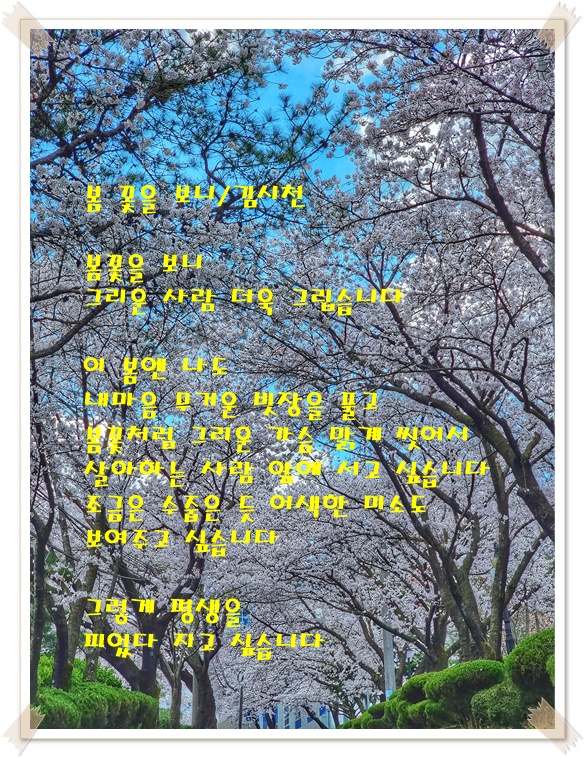 봄 꽃을 보니/김시천
봄꽃을 보니
그리운 사람 더욱 그립습니다
이 봄엔 나도
내마음 무거운 빗장을 풀고
봄꽃처럼 그리운 가슴 맑게 씻어서
사랑하는 사람 앞에 서고 싶습니다
조금은 수줍은 듯 어색한 미소도
보여주고 싶습니다
그렇게 평생을
피었다 지고 싶습니다